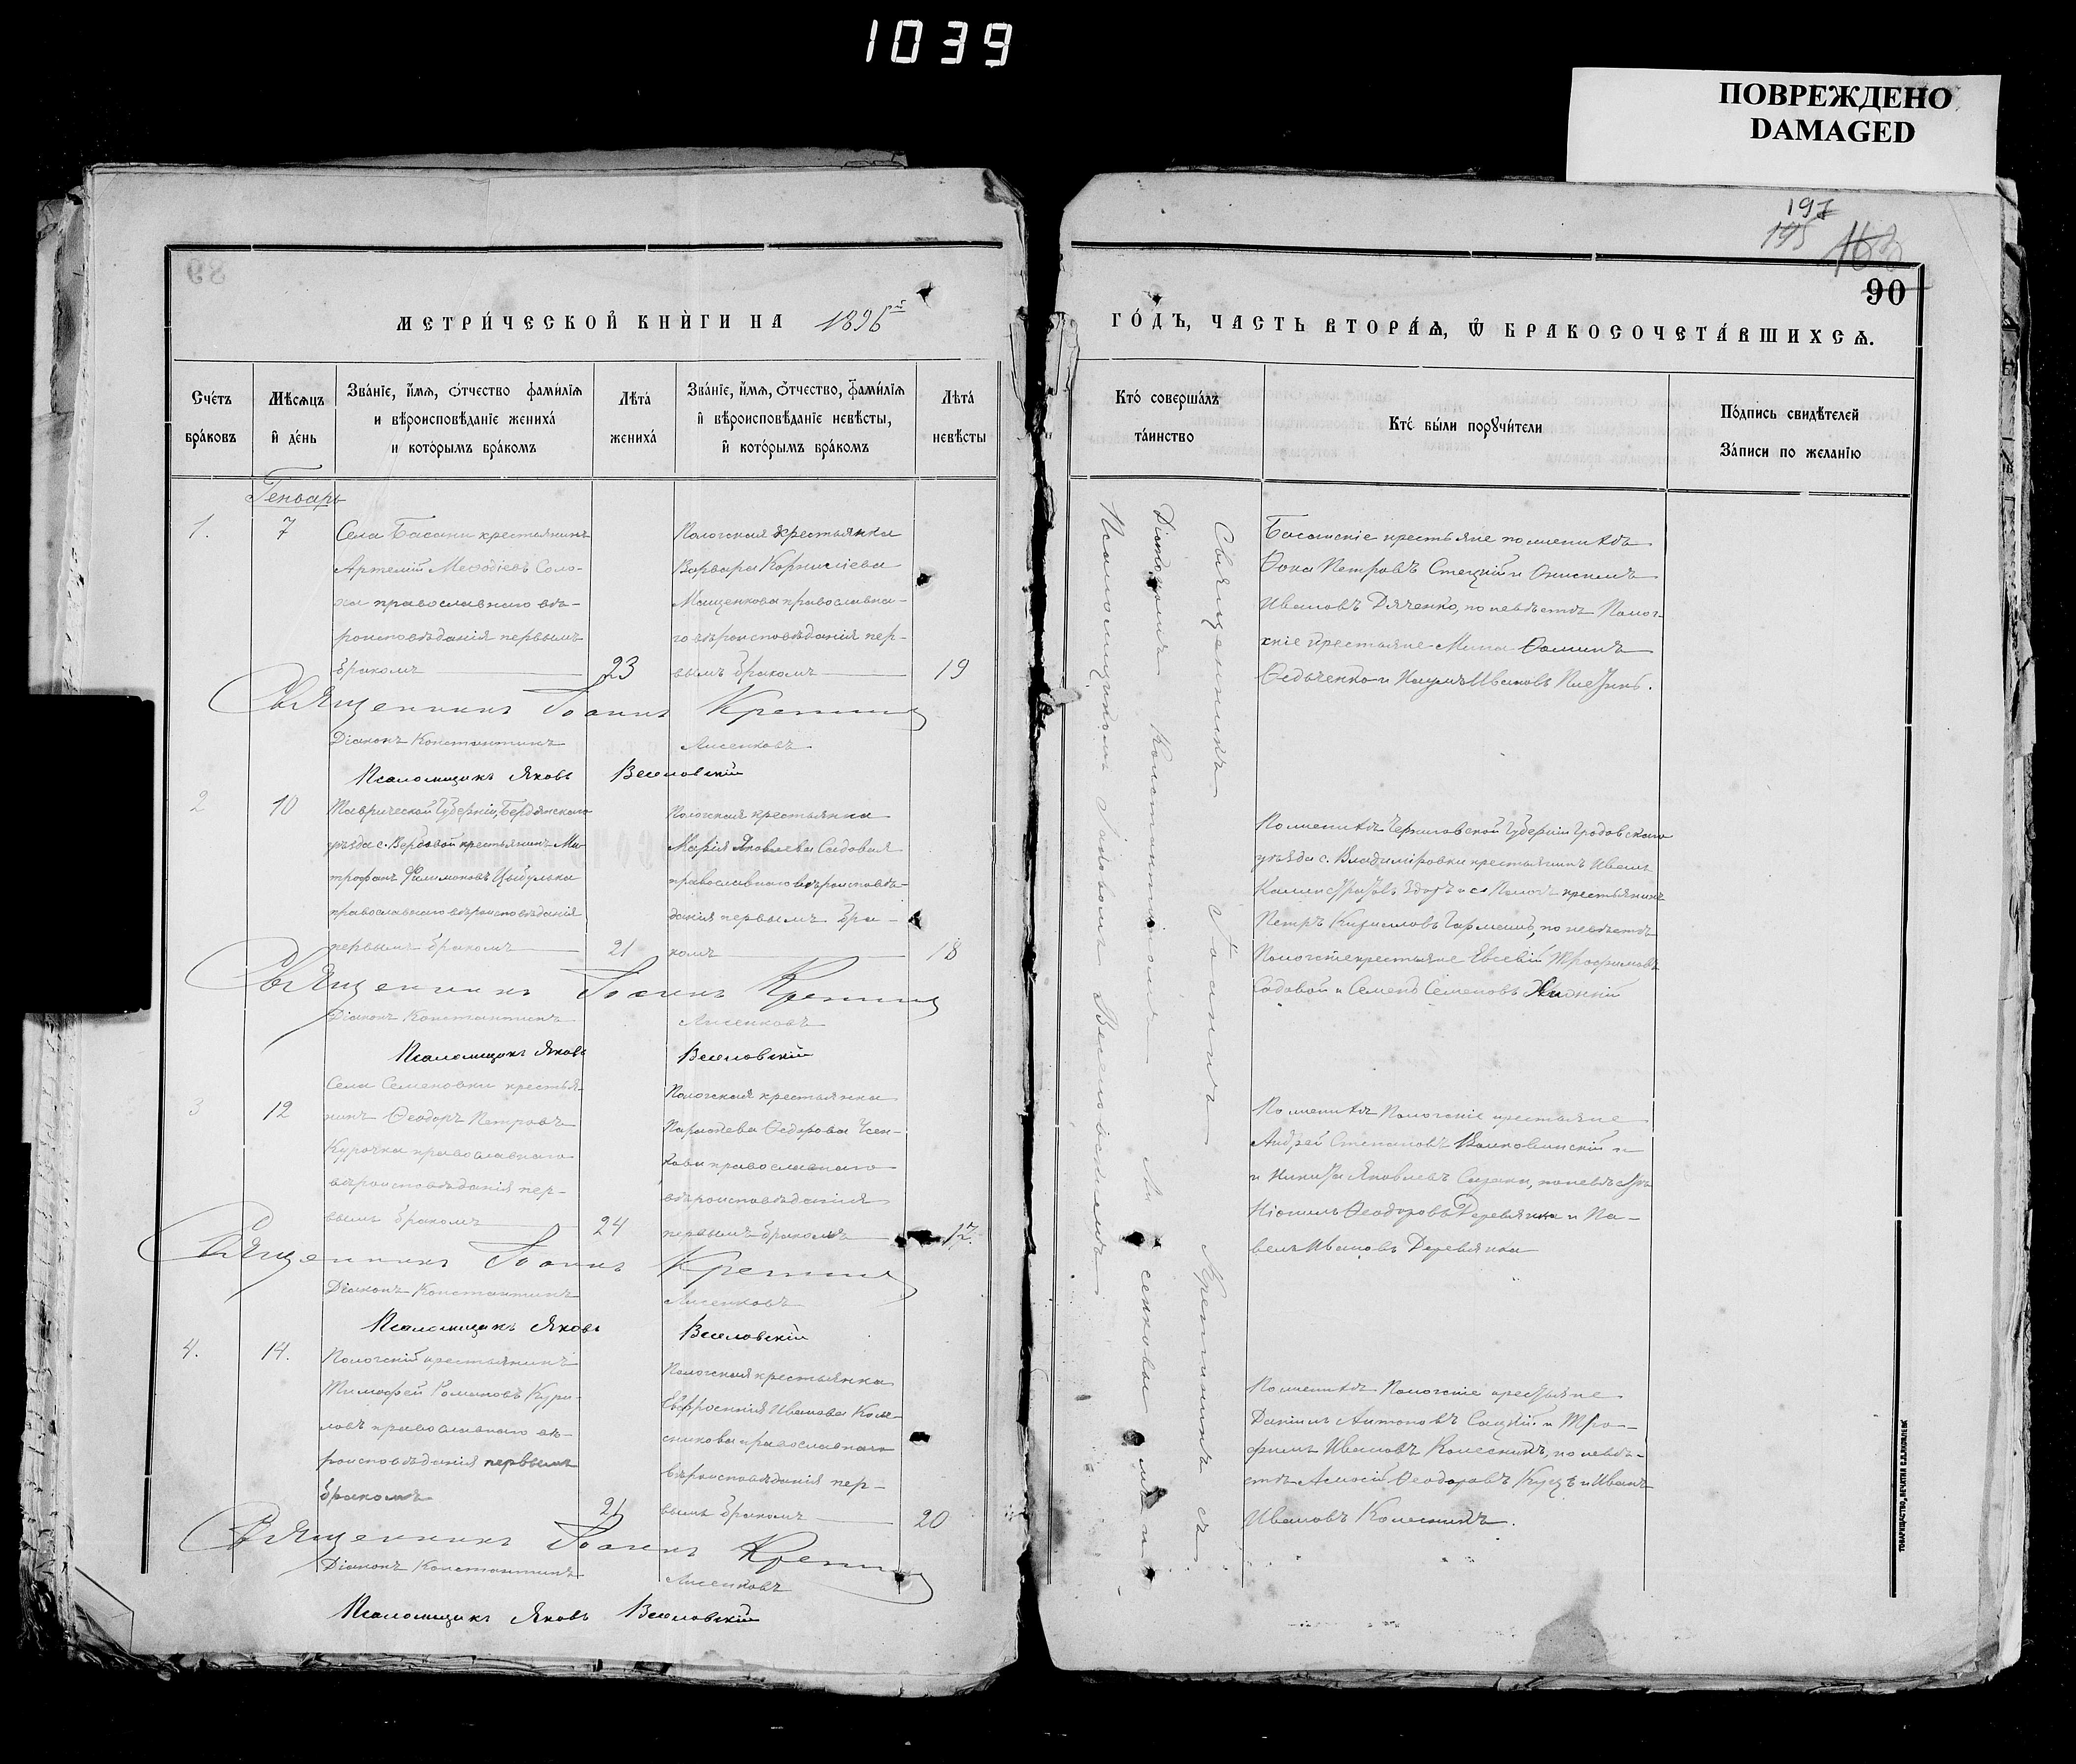 1039
ПОВРЕЖДЕНО
DAMAGED
197
195
90
МЕТРИ́ЧЕСКОЙ КНИ́ГИ НА 1896й
ГО́ДЪ, ЧАСТЬ ВТОРА́Ѧ, Ѿ БРАКОСОЧЕТА́ВШИХСѦ.
Сче́тъ бра́ковъ
Мѣ́сѧцъ и҆ де́нь
Зва́нїе, и҆́мѧ, ѻ҆́тчество фами́лїѧ
и вѣроисповѣ́данїе жениха́
и кото́рымъ бра́комъ
Лѣта́ жениха́
Зва́нїе, и҆́мѧ, ѻ҆́тчество, фами́лїѧ
и҆ вѣроисповѣ́данїе невѣ́сты,
и҆ кото́рымъ бра́комъ
Лѣта́ невѣ́сты
Кто́ соверша́лъ
та́инство
Кто́ бы́ли порꙋчи́тели
По́дпись свидѣ́телей
За́писи по жела́нїю
Генварь
1.
7
Села Басани крестьянинъ
Артемій Меѳодіевъ Соло-
ха православнаго вѣ-
роисповѣданія первымъ
бракомъ
23
Пологская крестьянка
Варвара Корниліева
Мащенкова православна-
го вѣроисповѣданія пер-
вымъ бракомъ
19
Басанскіе крестьяне по женихѣ
Ѳока Петровъ Стецкій и Онисимъ
Ивановъ Дяченко, по невѣстѣ Полог-
скіе крестьяне Мина Ѳоминъ
Ѳедьченко и Наумъ Ивановъ
Священникъ Іоаннъ
Діаконъ Константинъ Лисенковъ
Псаломщикъ Яковъ Веселовскій
2
10
Таврической Губерніи, Бердянскаго
уѣзда с. Вербовой крестьянинъ Ми-
трофанъ Филимоновъ Цыбулька
православнаго вѣроисповѣданія
первымъ бракомъ
21
Пологская крестьянка
Марія Яковлева Садовая
православнаго вѣроисповѣ-
данія первымъ бра-
комъ
18
По женихѣ Черниговской Губерніи
уѣзда с. Владиміровки крестьянинъ Иванъ
Калистратовъ и с. Пологъ крестьянинъ
Петръ Кирилловъ по невѣстѣ
Пологскіе крестьяне Евсевій Трофимовъ
Садовой и Семенъ Семеновъ
Священникъ Іоаннъ
Діаконъ Константинъ Лисенковъ
Псаломщикъ Яковъ Веселовскій
3
12
Села Семеновки крестья-
нинъ Ѳеодоръ Петровъ
Курочка православнаго
вѣроисповѣданія пер-
вымъ бракомъ
24
Пологская крестьянка
Параскева Ѳедорова
православнаго
вѣроисповѣданія
первымъ бракомъ
17.
По женихѣ Пологскіе крестьяне
Андрей Степановъ
и Никита Яковлевъ по невѣстѣ
Ѳеодоровъ Деревянка и Па-
велъ Ивановъ Деревянка
Священникъ Іоаннъ
Діаконъ Константинъ Лисенковъ
Псаломщикъ Яковъ Веселовскій
4.
14.
Пологскій крестьянинъ
Тимофей Романовъ Кури-
ловъ православнаго вѣ-
роисповѣданія первымъ
бракомъ
21
Пологская крестьянка
Евфросинія Иванова Коле-
сникова православнаго
вѣроисповѣданія пер-
вымъ бракомъ
20
По женихѣ Пологскіе крестьяне
Даніилъ Антоновъ и Тро-
фимъ Ивановъ Колесникъ, по невѣ-
стѣ Ѳеодоровъ Куцъ и Иванъ
Ивановъ Колесникъ.
Священникъ Іоаннъ
Діаконъ Константинъ Лисенковъ
Псаломщикъ Яковъ Веселовскій
Священникъ Іоаннъ съ
Діакономъ Константиномъ Лисенковымъ и
Псаломщикомъ Яковомъ Веселовскимъ